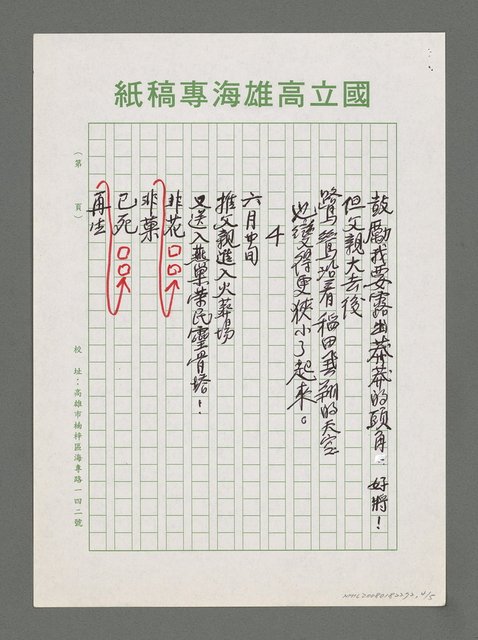 國立高雄海專稿紙
(第 頁)
校址:高雄市楠梓區海專路一四二號
鼓勵我要露出莽莽的頭角:好將!
但父親大去後
鷺鷥沿着稻田飛翔的天空
也變得更狹小了起來。
4
六月中旬
推父親進入火葬場
又送入燕巢榮民靈骨塔!
非花□□
非菓
已死□□
再生
NMTL20080182292, 4/5